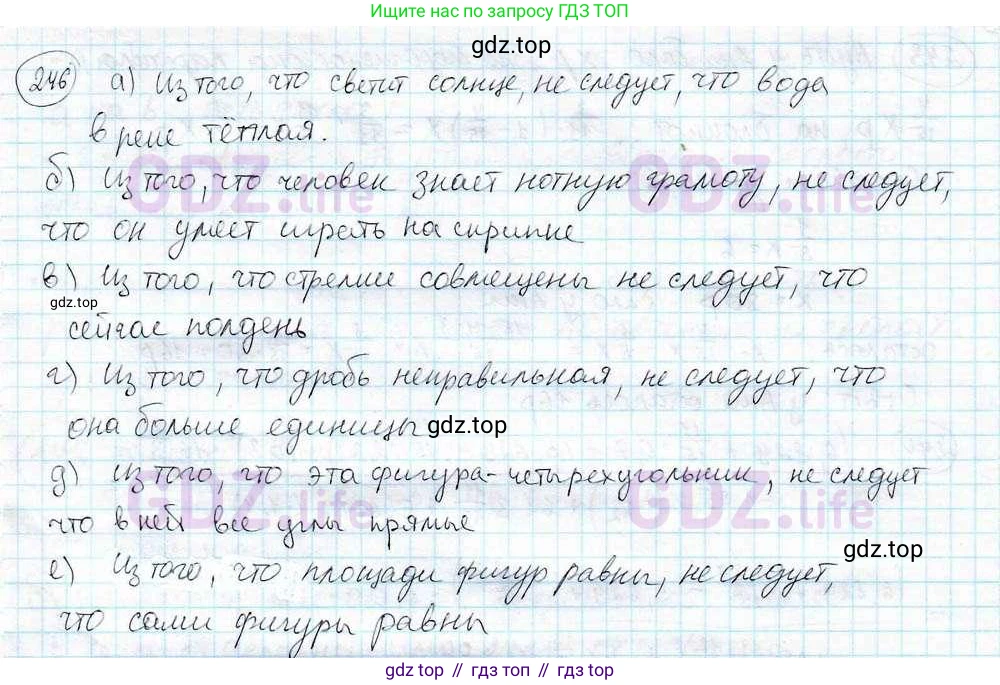 Ищите нас по запросу ГДЗ ТОП
gdz.top
246 а) Из того, что светит солнце, не следует, что вода
в реке тёплая.
GDZ.life GDZ.life
б) Из того, что человек знает нотную грамоту, не следует,
что он умеет играть на скрипке
в) Из того, что стрелки совмещены не следует, что
gdz.top
сейчас полдень
г) Из того, что дробь неправильная, не следует, что
она больше единицы gdz.top
д) Из того, что эта фигура-четырехугольник, не следует
GDZ.life GDZ.life
что в ней все углы прямые
gdz.top
е) Из того, что площади фигур равны, не следует,
что сами фигуры равны
gdz top // гдз топ // gdz.top